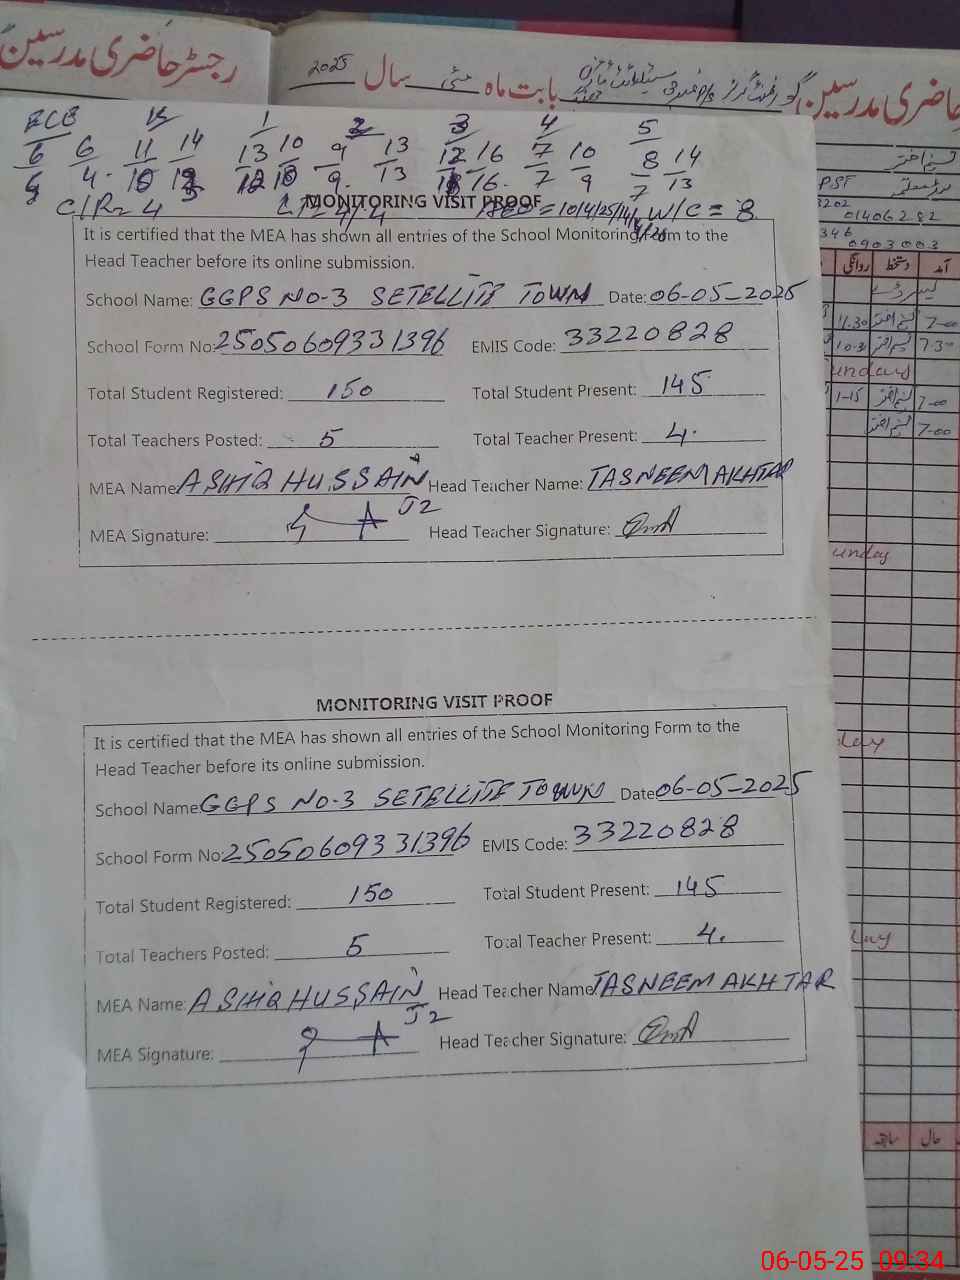 رجسٹر حاضری مدرسین
حاضری مدرسین گورنمنٹ گرلز
بابت ماہ مئی سال 2025
ECE K 1 2 3 4 5
6 6 11 14 13 10 9 13 12 16 7 10 8 14
4 13 9 13 16 7 9 7 13
C/R= 4 W/C = 8
MONITORING VISIT PROOF
It is certified that the MEA has shown all entries of the School Monitoring Form to the
Head Teacher before its online submission.
School Name: GGPS NO-3 SETELLITE TOWN Date: 06-05-2025
School Form No: 2505060933 1396 EMIS Code: 33220828
Total Student Registered: 150 Total Student Present: 145
Total Teachers Posted: 5 Total Teacher Present: 4.
MEA Name: ASHIQ HUSSAIN Head Teacher Name: TASNEEM AKHTAR
J2
MEA Signature: Head Teacher Signature:
MONITORING VISIT PROOF
It is certified that the MEA has shown all entries of the School Monitoring Form to the
Head Teacher before its online submission.
School Name: GGPS NO-3 SETELLITE TOWN Date 06-05-2025
School Form No: 2505060933 1396 EMIS Code: 33220828
Total Student Registered: 150 Total Student Present: 145
Total Teachers Posted: 5 Total Teacher Present: 4.
MEA Name: ASHIQ HUSSAIN Head Teacher Name TASNEEM AKHTAR
J2
MEA Signature: Head Teacher Signature:
PST
3202
01406282
346
0903003
روانگی دستخط آمد
11.30 7-00
7.30
undays
1-15 7-00
7-00
unday
day
سابقہ حال
06-05-25 09:34